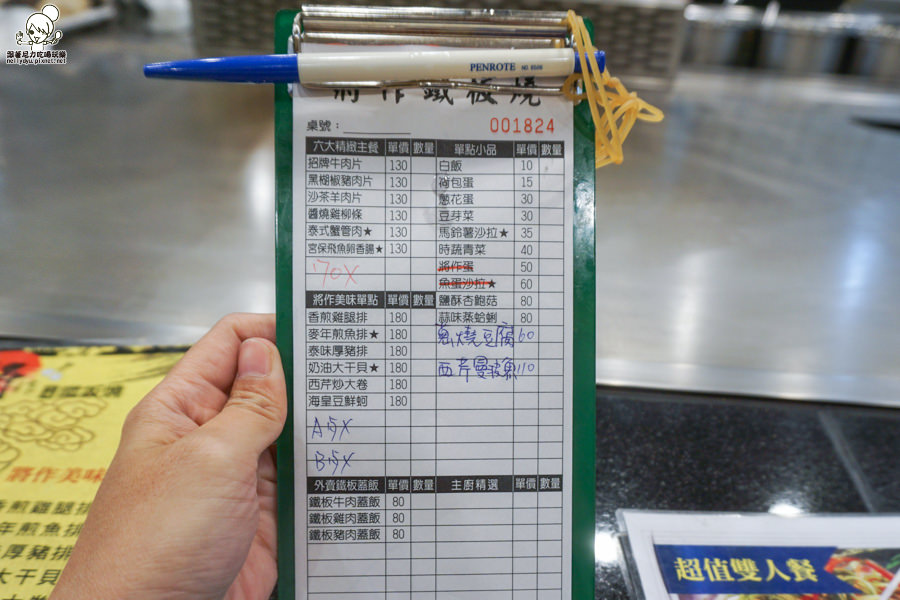 跟著尼力吃喝玩樂
nellydyu.pixnet.net
PENROTE NO. 6506
將作鐵板燒
桌號：
001824
六大精緻主餐 單價 數量
招牌牛肉片 130
黑糊椒豬肉片 130
沙茶羊肉片 130
醬燒雞柳條 130
泰式蟹管肉★ 130
宮保飛魚卵香腸★ 130
將作美味單點 單價 數量
香煎雞腿排 180
麥年煎魚排★ 180
泰味厚豬排 180
奶油大干貝★ 180
西芹炒大卷 180
海皇豆鮮蚵 180
A5X
B5X
外賣鐵板蓋飯 單價 數量
鐵板牛肉蓋飯 80
鐵板雞肉蓋飯 80
鐵板豬肉蓋飯 80
單點小品 單價 數量
白飯 10
荷包蛋 15
蔥花蛋 30
豆芽菜 30
馬鈴薯沙拉★ 35
時蔬青菜 40
將作蛋 50
魚蛋沙拉★ 60
鹽酥杏鮑菇 80
蒜味蒸蛤蜊 80
燒豆腐 60
西芹曼波魚 110
主廚精選 單價 數量
將作美味
香煎雞腿排
年煎魚排
厚豬排
大干貝
超值雙人餐